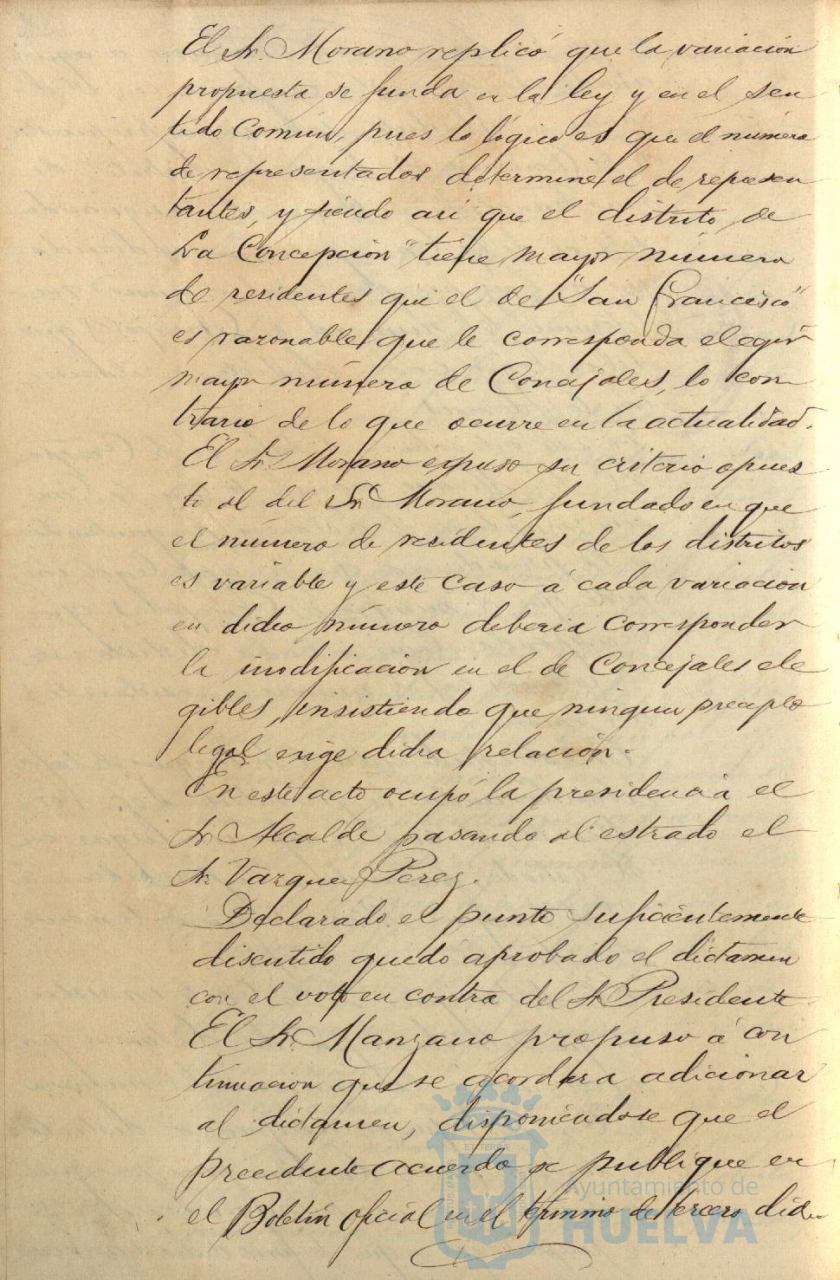 El Sr. Morano replicó que la variación
propuesta se funda en la ley y en el sen
tido común, pues lo lógico es que el número
de representados determine el de represen
tantes, y siendo así que el distrito de
La Concepción" tiene mayor número
de residentes que el de "San Francisco"
es razonable que le corresponda elegir
mayor número de Concejales, lo con
trario de lo que ocurre en la actualidad.
El Sr. Morano expuso su criterio opues
to al del Sr. Morano, fundado en que
el número de residentes de los distritos
es variable y este caso á cada variacion
en dicho número deberia corresponder
la modificación en el de Concejales ele
gibles, insistiendo que ningun precepto
legal exige dicha relación.
En este acto ocupó la presidencia el
Sr. Alcalde pasando al estrado el
Sr. Vazquez Perez.
Declarado el punto suficientemente
discutido quedó aprobado el dictamen
con el voto en contra del Sr. Presidente
El Sr. Manzano propuso á con
tinuacion que se acordara adicionar
al dictamen, disponiéndose que el
precedente acuerdo se publique en
el Boletín oficial en el termino de tercero dia
Ayuntamiento de
HUELVA